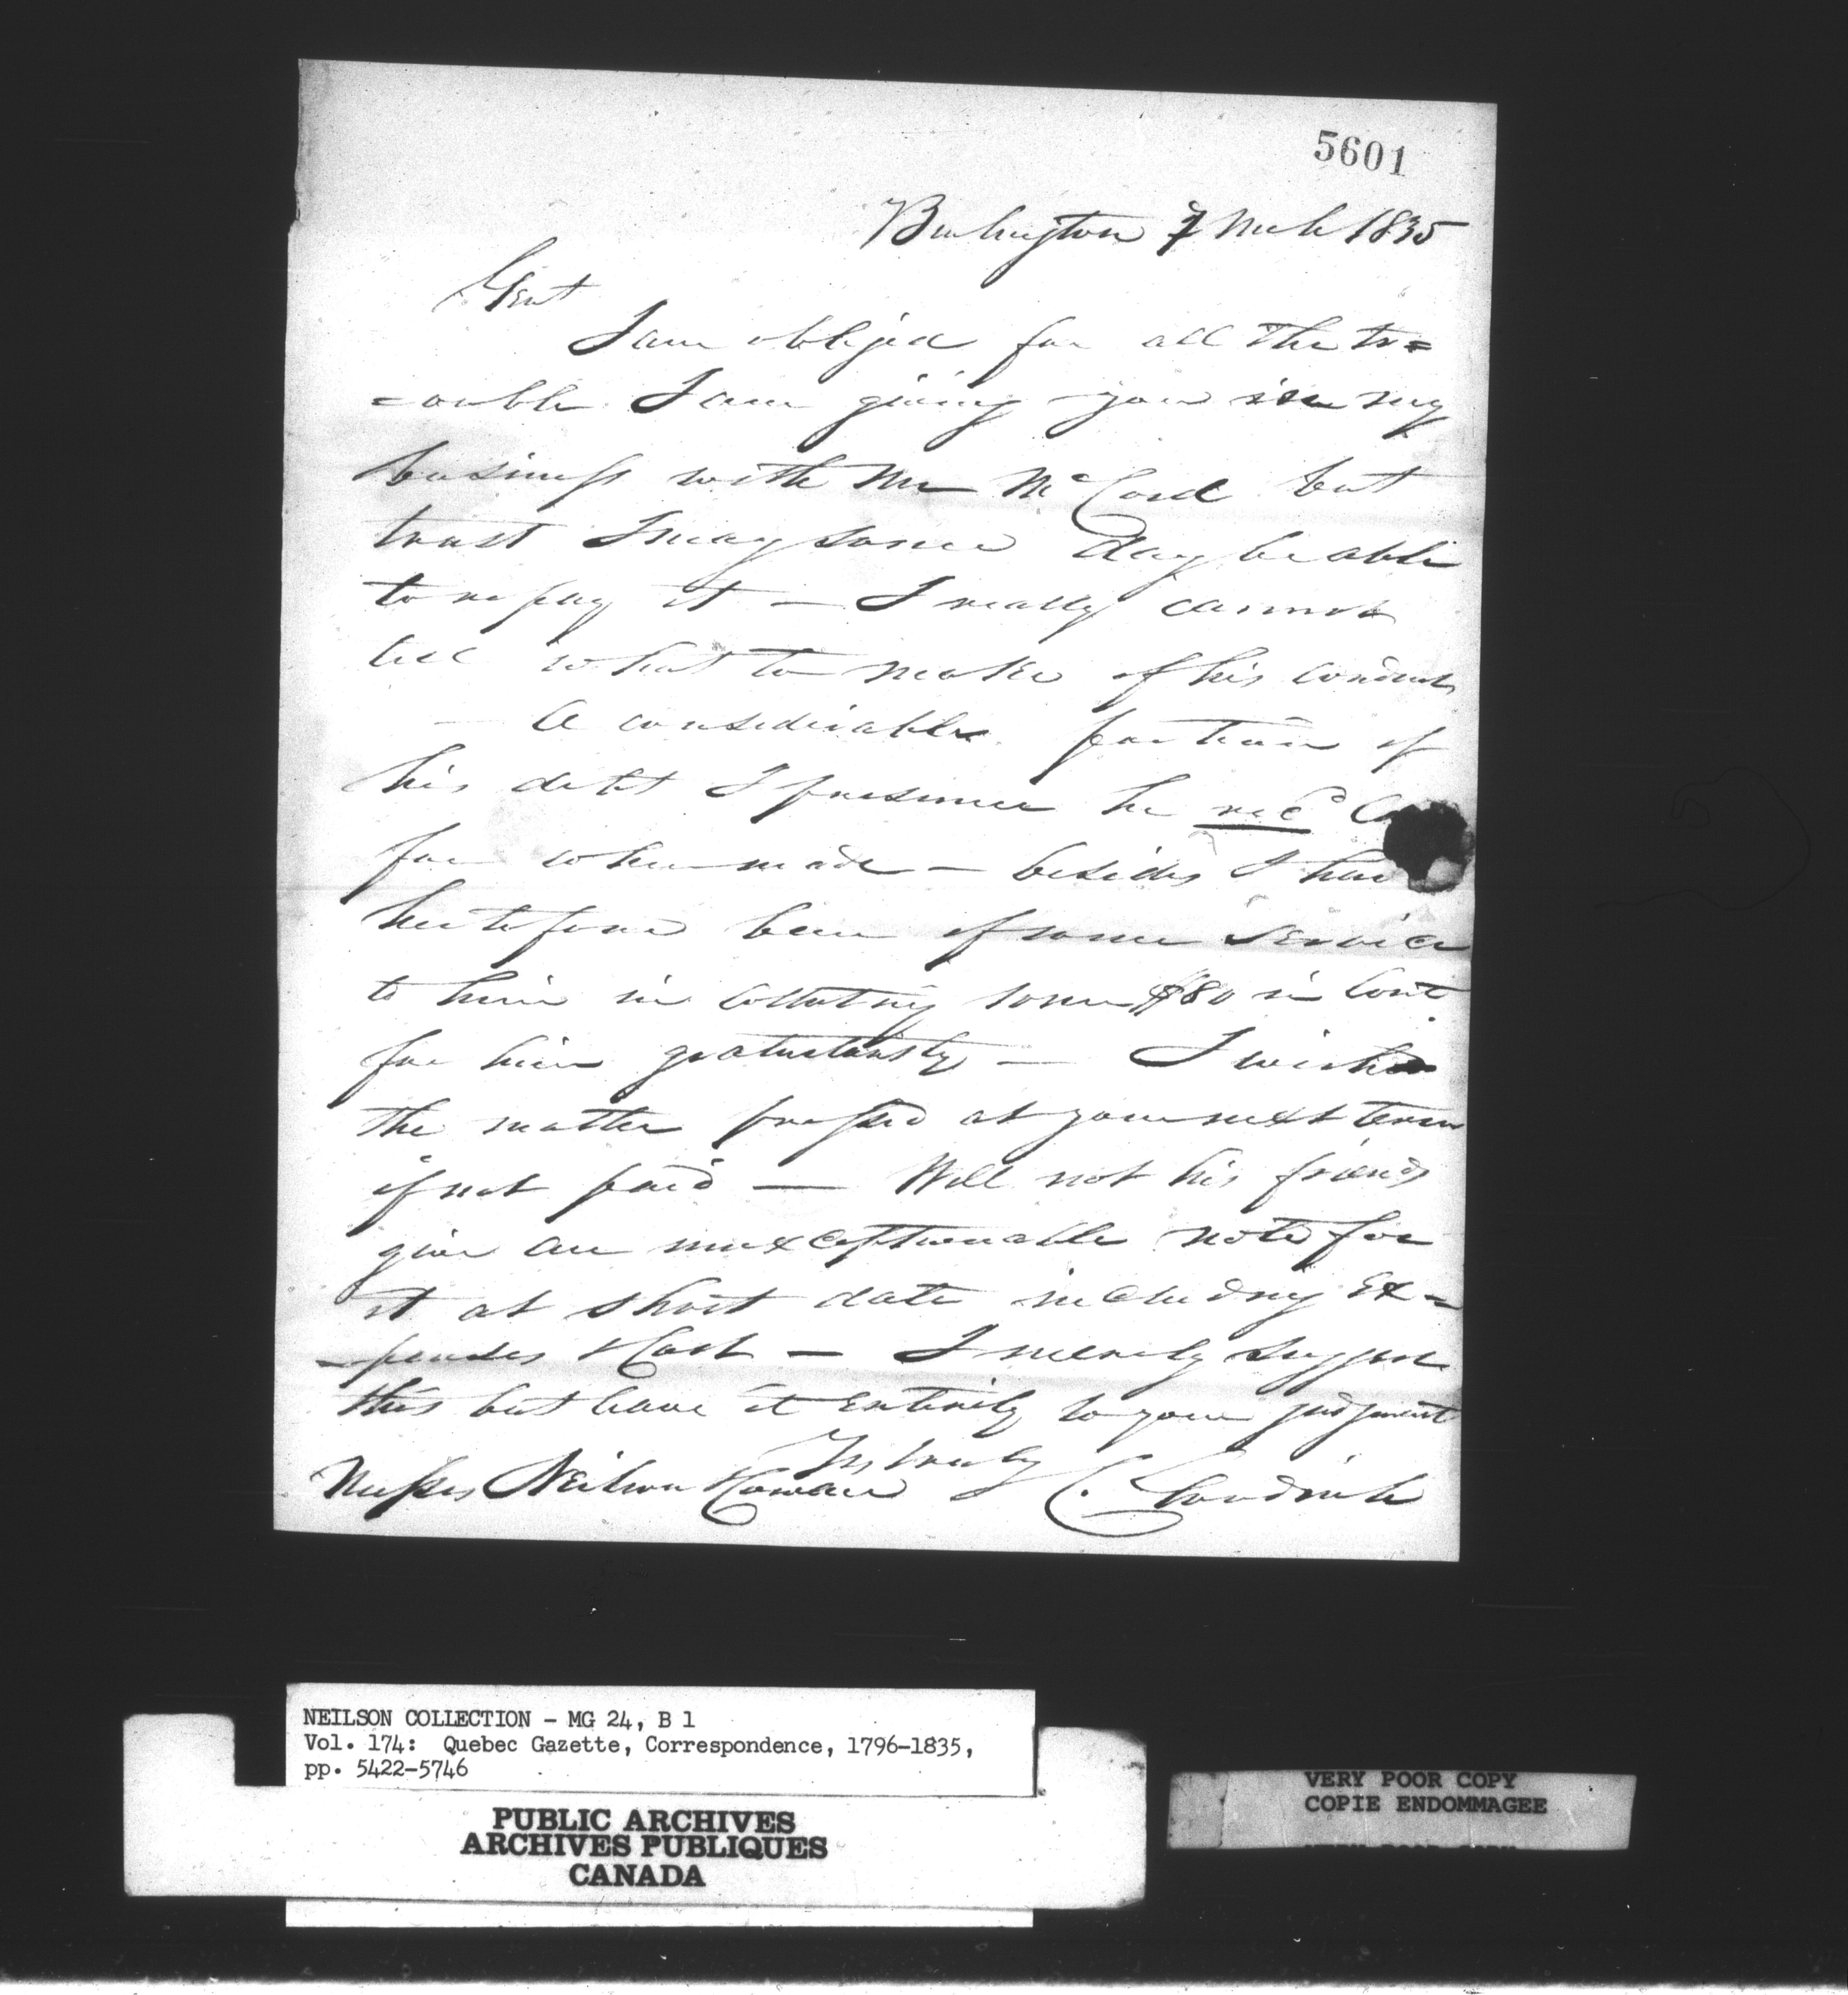 5601
Burlington 7 Mch 1835
Gent
I am obliged for all the tr=
=ouble I am giving you in my
business with Mr McCord but
trust I may some day be able
to repay it — I really cannot
tell what to make of his conduct
— A considerable portion of
his debt I presume he recd
for when made — besides I have
heretofore been of some service
to him in collecting some $80 in Cort
for him gratuitously — I wish
the matter pressed at your next term
if not paid — Will not his friends
give an unexceptionable note for
it at short date including ex=
=penses & Cost — I merely suggest
this but leave it entirely to your judgment
Yrs truly
Messrs Neilson & Cowan C. Goodrich
NEILSON COLLECTION - MG 24, B 1
Vol. 174: Quebec Gazette, Correspondence, 1796-1835,
pp. 5422-5746
PUBLIC ARCHIVES
ARCHIVES PUBLIQUES
CANADA
VERY POOR COPY
COPIE ENDOMMAGEE